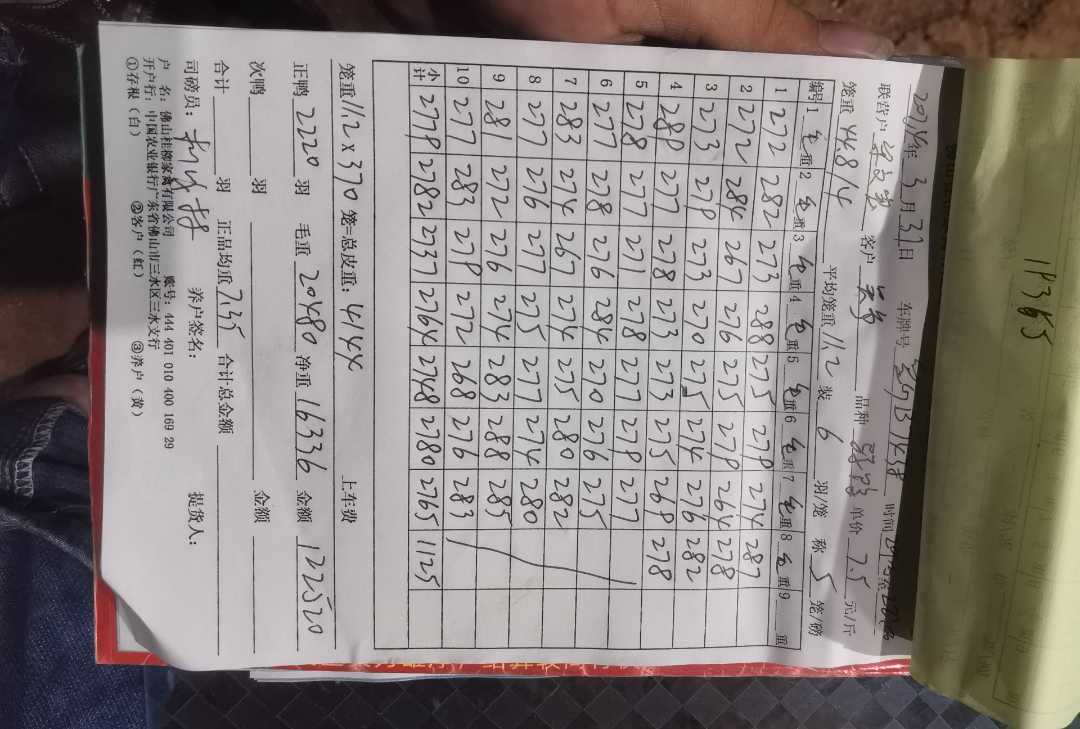 194365
2024年 3月31日 车牌号 时间
联营户 客户 品种 单价 7.5 元/斤
笼重 448/4 平均笼重 11.2 装 6 羽/笼 称 5 笼/磅
编号 1 毛重 2 毛重 3 毛重 4 毛重 5 毛重 6 毛重 7 毛重 8 毛重 9 重
1 272 282 273 288 275 279 274 287
2 272 284 267 276 275 279 264 278
3 273 279 273 270 275 274 276 282
4 288 277 278 273 273 275 269 278
5 278 277 271 278 277 279 277
6 277 278 276 284 270 276 275
7 283 274 267 274 275 280 282
8 277 276 277 275 277 274 280
9 281 272 276 274 283 288 285
10 277 283 279 272 268 276 283
小计 2778 2782 2737 2764 2748 2780 2765 1125
笼重 11.2 x 370 笼=总皮重: 4144 上车费
正鸭 2220 羽 毛重 20480 净重 16336 金额 122520
次鸭 羽 金额
合计 羽 正品均重 7.35 合计总金额
司磅员: 养户签名: 提货人:
户 名: 佛山桂柳家禽有限公司 账号: 444 401 010 400 169 29
开户行: 中国农业银行广东省佛山市三水区三水支行
①存根（白） ②客户（红） ③养户（黄）